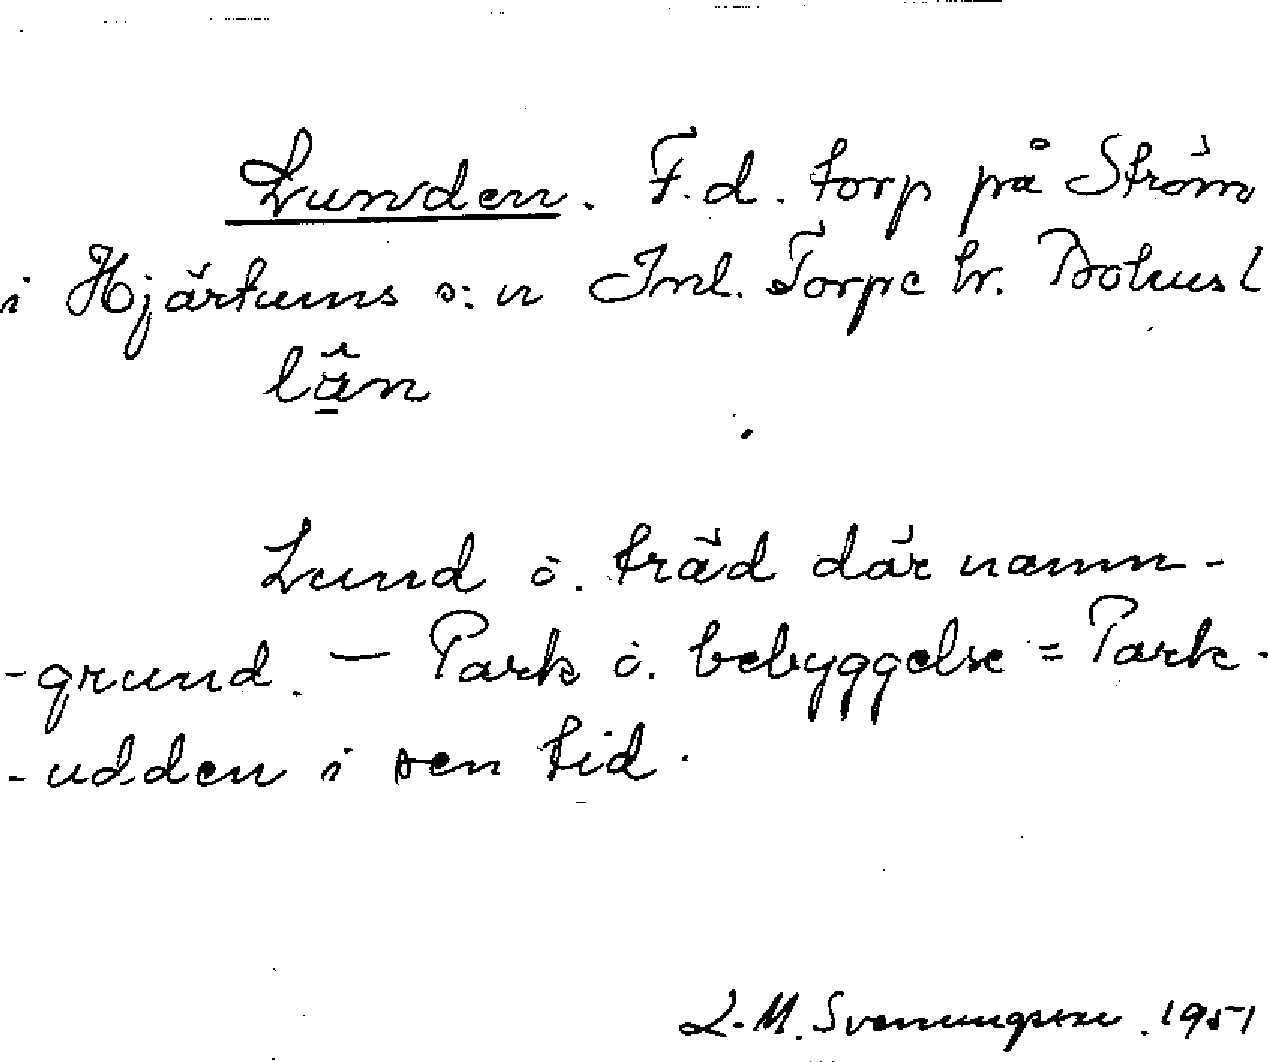 Lunden. F.d. torp på Ström
i Hjärtums s:n Inl. Torpe hr. Bohusl
län
Lund o. träd där namn-
-grund. — Park o. bebyggelse = Park-
-udden i sen tid.
L.M. Svenungsson. 1951